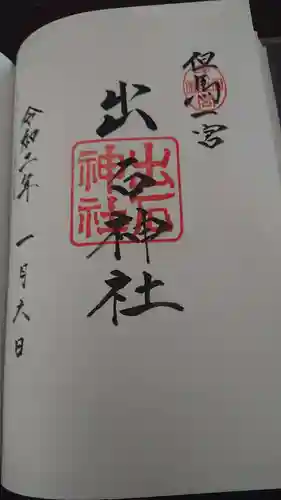 但馬一宮
出石神社
出石神社
令和二年 一月六日